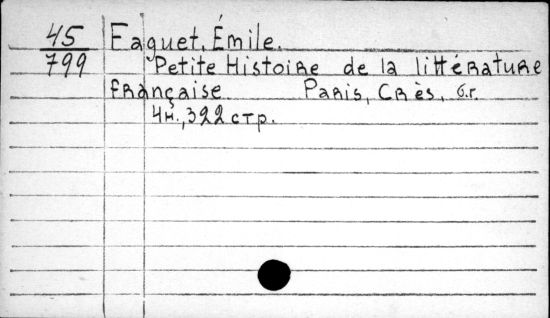 45
799
Faguet, Émile.
Petite Histoire de la littérature
française. Paris, Crès, б.г.
4н., 322 стр.